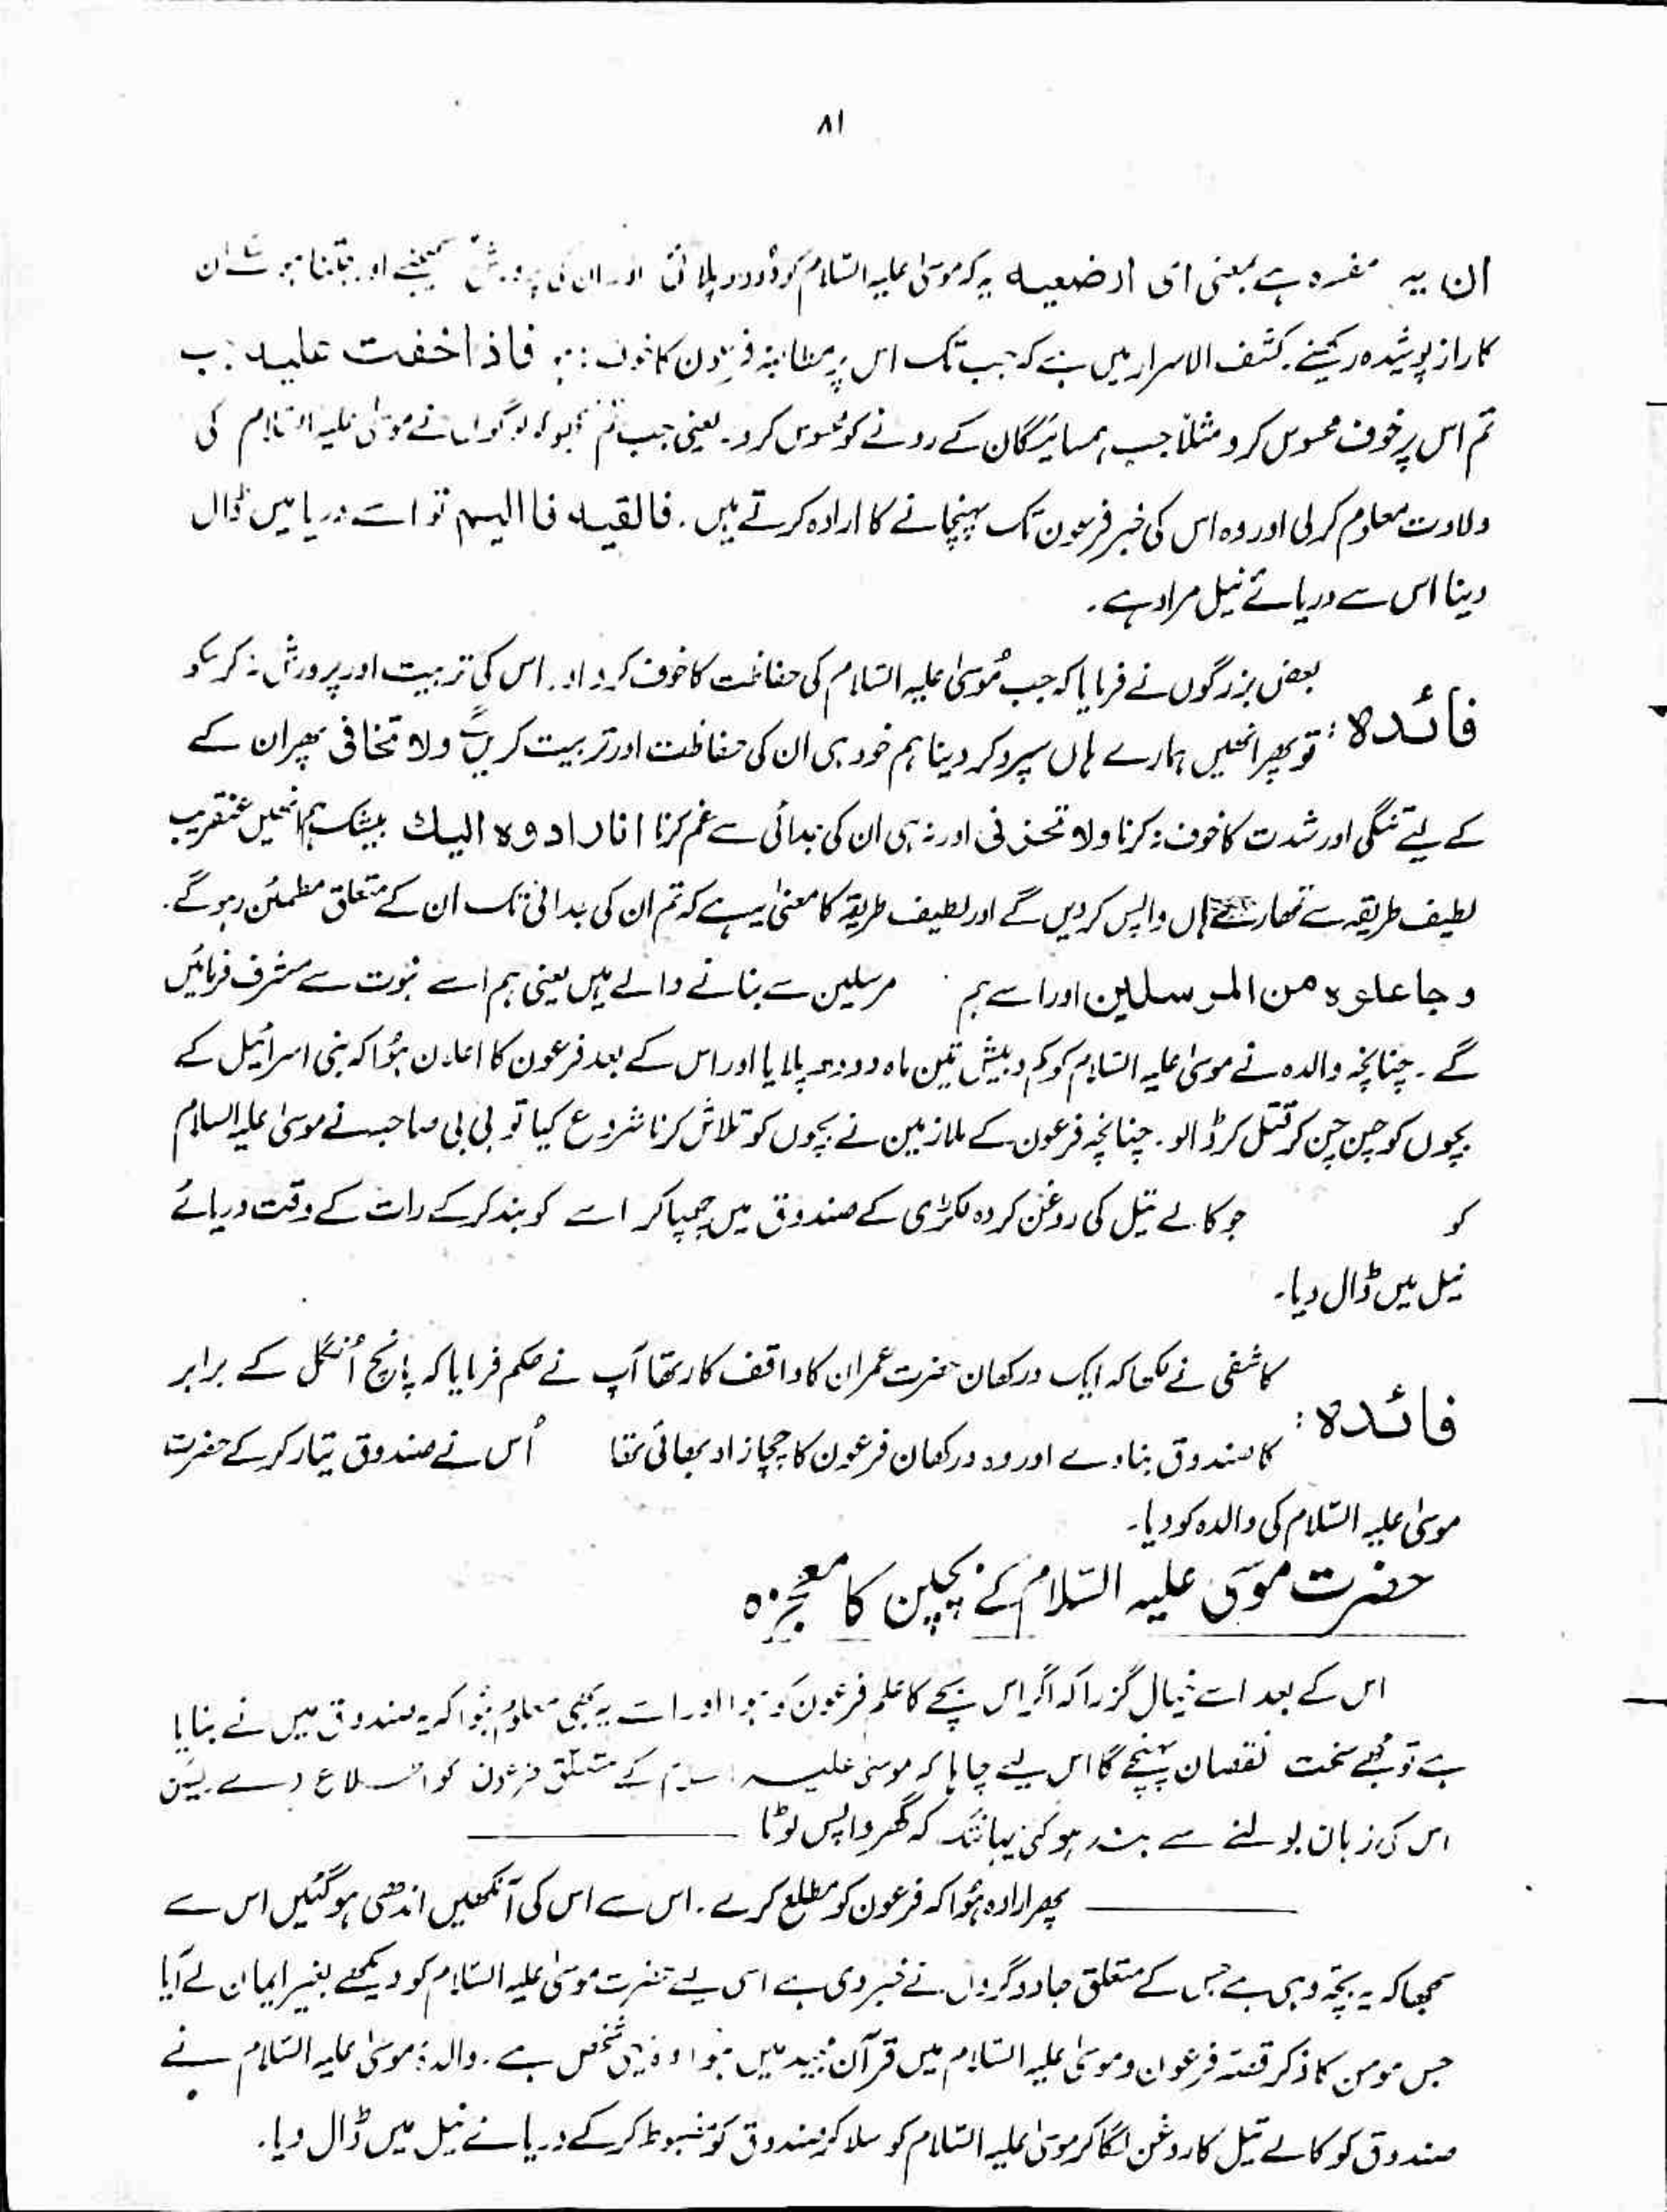 ۸۱
ان یہ مفسرہ ہے بمعنی ای ارضعیہ یہ کہ موسیٰ علیہ السّلام کو دُودھ پلائی اور ان کی پرورش کیجئے اور جتنا ہو سکے ان
کا راز پوشیدہ رکھئے۔ کشف الاسرار میں ہے کہ جب تک اس پر مطالبۂ فرعون کا خوف نہ ہو فاذا خفت علیہ جب
تم اس پر خوف محسوس کرو مثلاً جب ہمسائیگان کے رونے کو محسوس کرو۔ یعنی جب تم سمجھو کہ لوگوں نے موسیٰ علیہ السّلام کی
ولادت معلوم کر لی اور وہ اس کی خبر فرعون تک پہنچانے کا ارادہ کرتے ہیں۔ فالقیہ فاالیم تو اسے دریا میں ڈال
دینا اس سے دریائے نیل مراد ہے۔
بعض بزرگوں نے فرمایا کہ جب مُوسیٰ علیہ السّلام کی حفاظت کا خوف کرو اور اس کی تربیت اور پرورش نہ کر سکو
فائدہ :
تو پھر انھیں ہمارے ہاں سپرد کر دینا ہم خود ہی ان کی حفاظت اور تربیت کریں گے ولا تخافی پھر ان کے
کے لیے تنگی اور شدت کا خوف نہ کرنا ولا تحزنی اور نہ ہی ان کی جدائی سے غم کرنا انا رادوہ الیك بیشک ہم انھیں عنقریب
لطیف طریقہ سے تمھارے ہاں واپس کر دیں گے اور لطیف طریقہ کا معنیٰ یہ ہے کہ تم ان کی جدائی تک ان کے متعلق مطمئن رہو گے۔
و جاعلوہ من المرسلین اور اسے ہم مرسلین سے بنانے والے ہیں یعنی ہم اسے نبوت سے مشرف فرمائیں
گے۔ چنانچہ والدہ نے موسیٰ علیہ السّلام کو کم و بیش تین ماہ دودھ پلایا اور اس کے بعد فرعون کا اعلان ہُوا کہ بنی اسرائیل کے
بچوں کو چن چن کر قتل کر ڈالو۔ چنانچہ فرعون کے ملازمین نے بچوں کو تلاش کرنا شروع کیا تو بی بی صاحبہ نے موسیٰ علیہ السلام
کو جو کالے تیل کی روغن کردہ لکڑی کے صندوق میں چھپا کر اسے کو بند کر کے رات کے وقت دریائے
نیل میں ڈال دیا۔
کاشفی نے لکھا کہ ایک درکھان حضرت عمران کا واقف کار تھا آپ نے حکم فرمایا کہ پانچ اُنگل کے برابر
فائدہ :
کا صندوق بنا دے اور وہ درکھان فرعون کا چچا زاد بھائی تھا اُس نے صندوق تیار کر کے حضرت
موسیٰ علیہ السّلام کی والدہ کو دیا۔
حضرت موسیٰ علیہ السّلام کے بچپن کا معجزہ
اس کے بعد اسے خیال گزرا کہ اگر اس بچے کا علم فرعون کو ہوا اور اسے یہ بھی معلوم ہُوا کہ یہ صندوق میں نے بنایا
ہے تو مجھے سخت نقصان پہنچے گا اس لیے چاہا کہ موسیٰ علیہ السلام کے متعلق فرعون کو اطلاع دے لیکن
اس کی زبان بولنے سے بند ہو گئی یہانتک کہ گھر واپس لوٹا
پھر ارادہ ہُوا کہ فرعون کو مطلع کرے۔ اس سے اس کی آنکھیں اندھی ہو گئیں اس سے
سمجھا کہ یہ بچّہ وہی ہے جس کے متعلق جادوگروں نے خبر دی ہے اسی لیے حضرت موسیٰ علیہ السّلام کو دیکھے بغیر ایمان لے آیا
جس مومن کا ذکر قصّہ فرعون و موسیٰ علیہ السّلام میں قرآن مجید میں ہُوا وہ یہی شخص ہے۔ والدۂ موسیٰ علیہ السّلام نے
صندوق کو کالے تیل کا روغن لگا کر موسیٰ علیہ السّلام کو سلا کر صندوق کو مضبوط کر کے دریائے نیل میں ڈال دیا۔